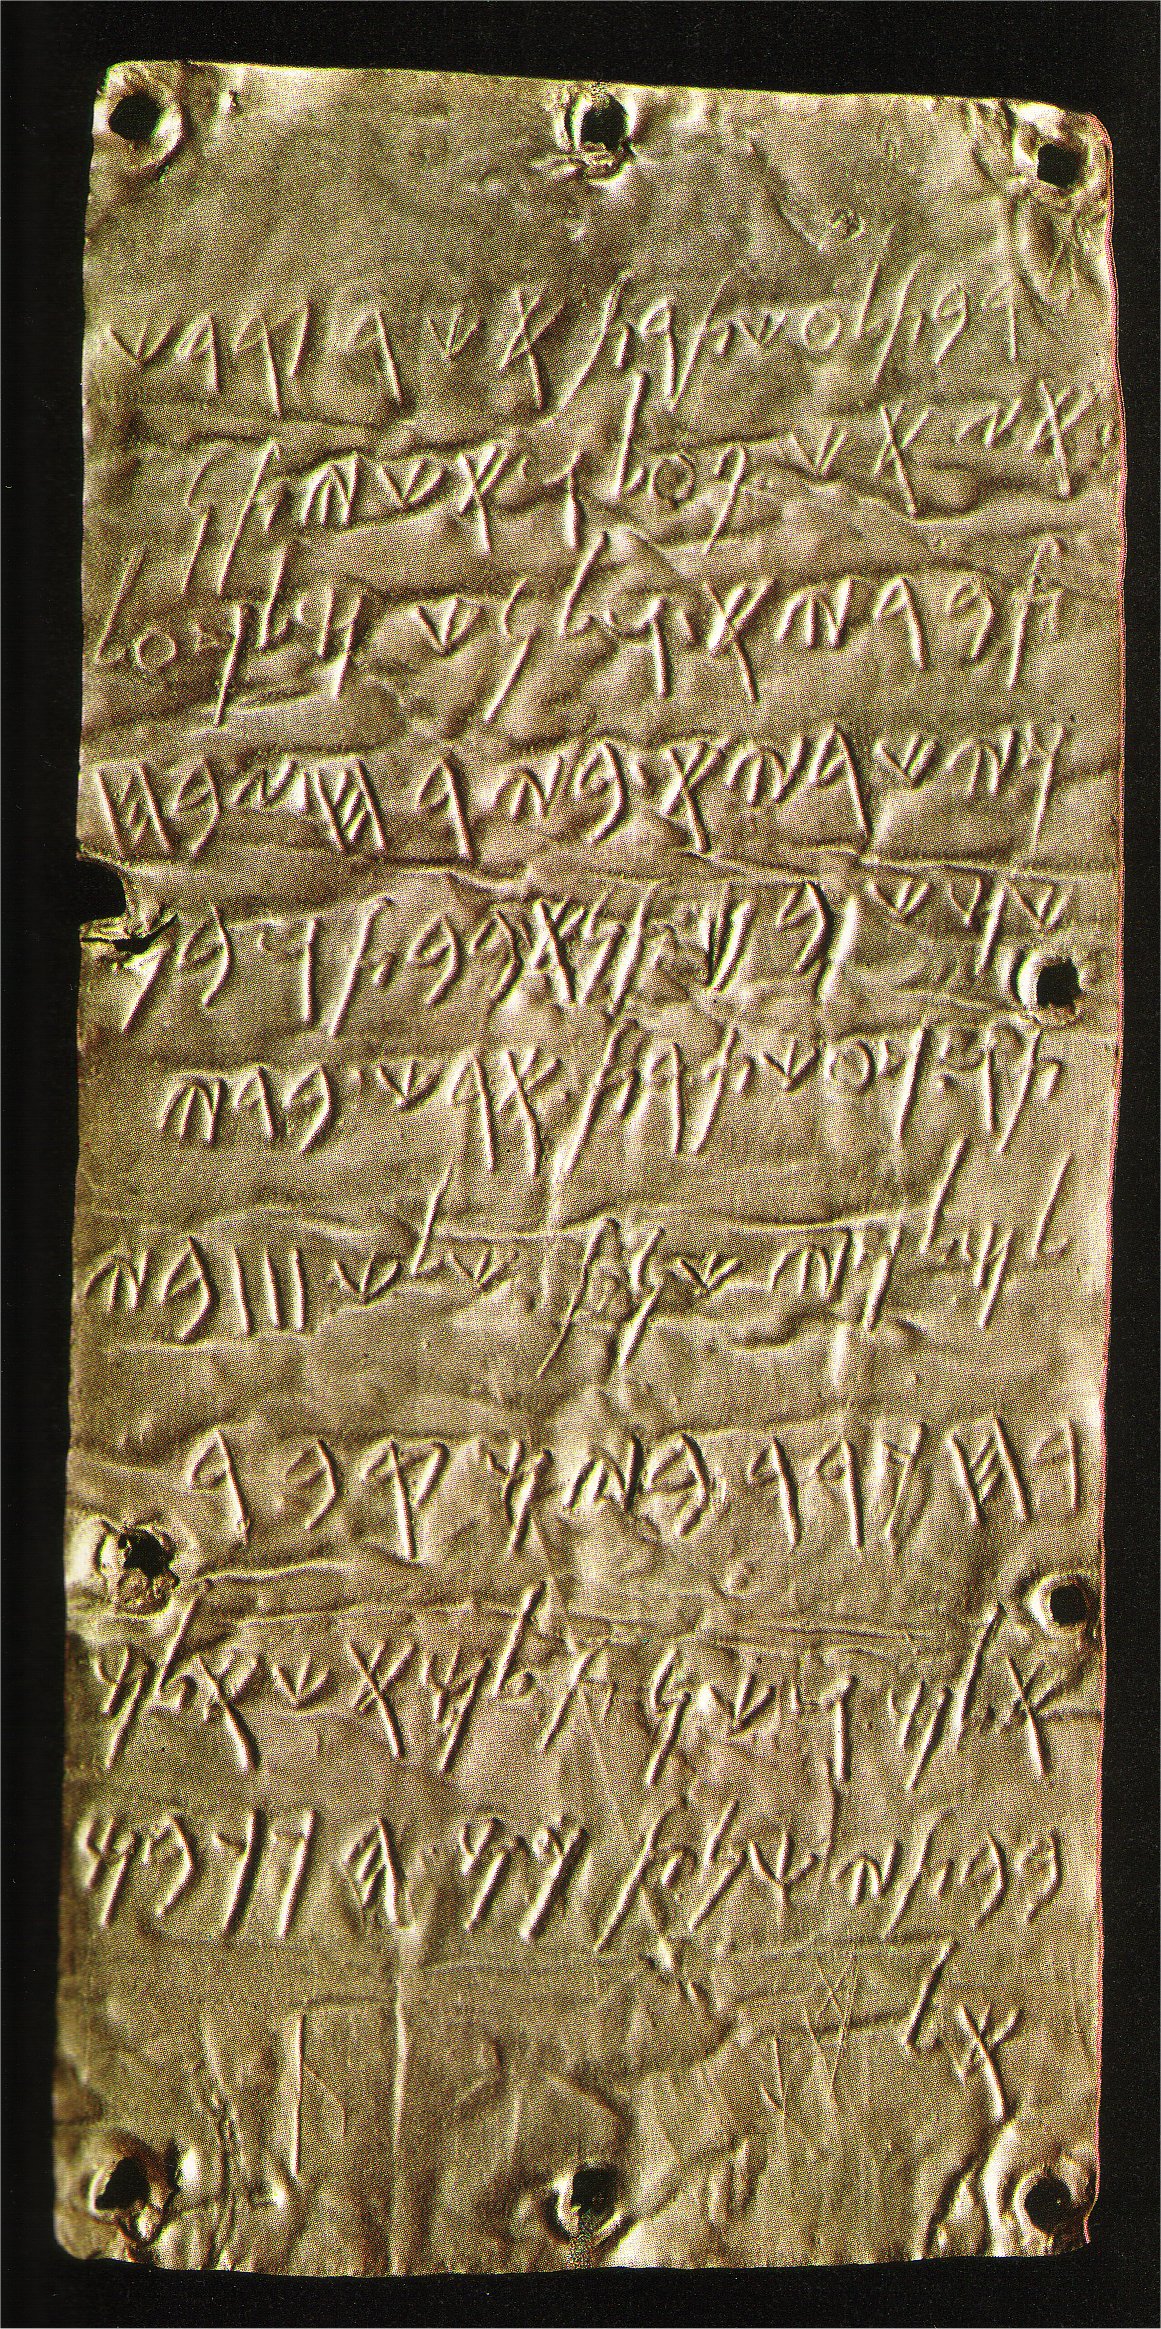 𐤋𐤓𐤁𐤕 𐤋𐤏𐤔𐤕𐤓𐤕 𐤀𐤔𐤓 𐤒𐤃𐤔
𐤀𐤆 𐤀𐤔 𐤐𐤏𐤋 𐤅𐤀𐤔 𐤉𐤕𐤍
𐤕𐤁𐤓𐤉𐤀 𐤅𐤋𐤍𐤔 𐤌𐤋𐤊 𐤏𐤋
𐤊𐤉𐤔𐤓𐤉𐤀 𐤁𐤉𐤓𐤇 𐤆𐤁𐤇
𐤔𐤌𐤔 𐤁𐤌𐤕𐤍𐤀 𐤁𐤁𐤕 𐤅𐤁𐤍
𐤕𐤅 𐤊𐤏𐤔𐤕𐤓𐤕 𐤀𐤓𐤔 𐤁𐤃𐤉
𐤋𐤌𐤋𐤊𐤉 𐤔𐤍𐤕 𐤔𐤋𐤔 𐤖𐤖𐤖 𐤁𐤉
𐤓𐤇 𐤊𐤓𐤓 𐤁𐤉𐤌 𐤒𐤁𐤓
𐤀𐤋𐤌 𐤅𐤔𐤍𐤕 𐤋𐤌𐤀𐤔 𐤀𐤋𐤌
𐤁𐤁𐤕𐤉 𐤔𐤍𐤕 𐤊𐤌 𐤄𐤊𐤊𐤁𐤌
𐤀𐤋